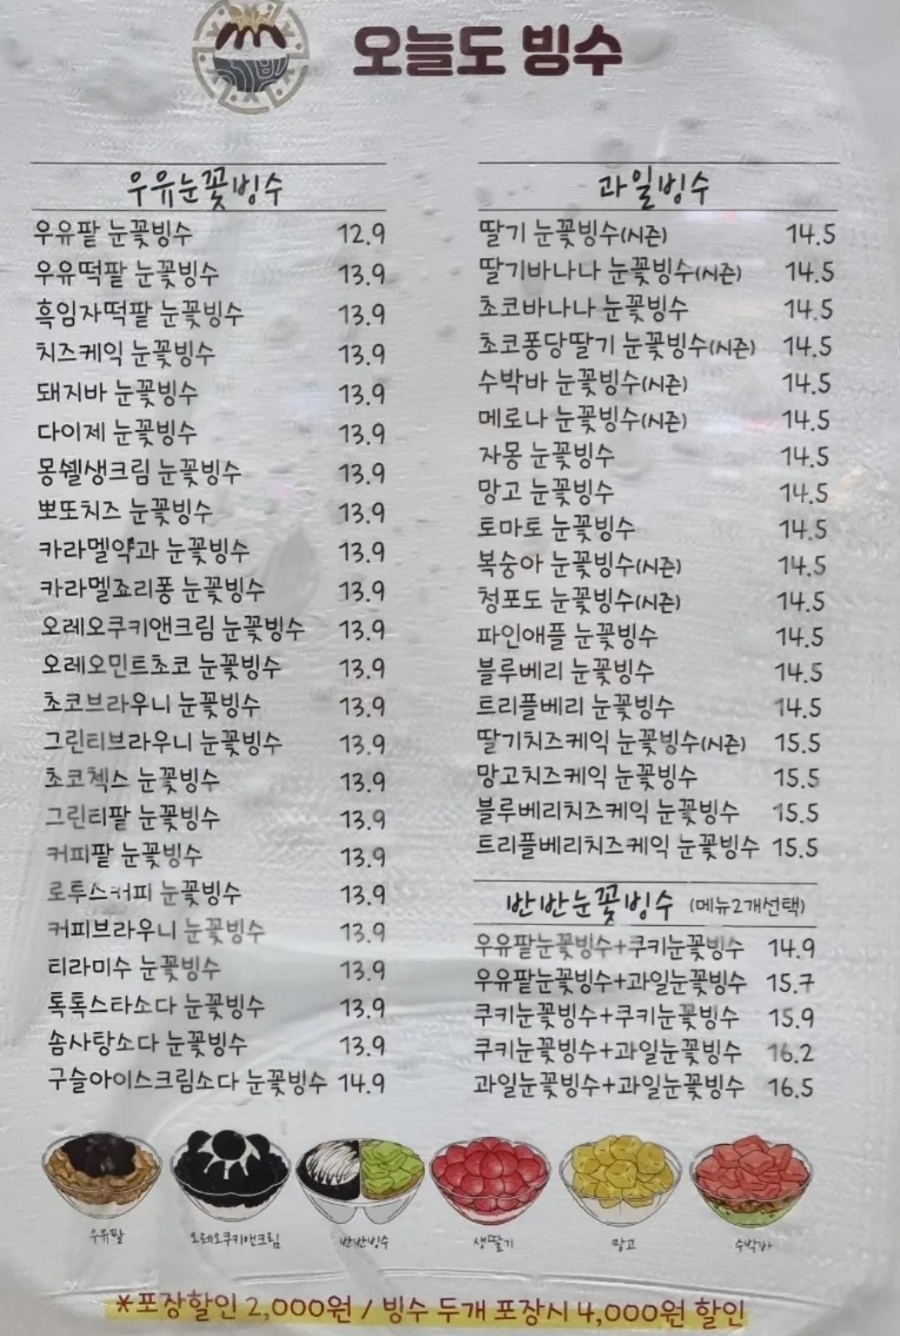 오늘도 빙수
우유눈꽃빙수
우유팥 눈꽃빙수 12.9
우유떡팥 눈꽃빙수 13.9
흑임자떡팥 눈꽃빙수 13.9
치즈케익 눈꽃빙수 13.9
돼지바 눈꽃빙수 13.9
다이제 눈꽃빙수 13.9
몽쉘생크림 눈꽃빙수 13.9
뽀또치즈 눈꽃빙수 13.9
카라멜약과 눈꽃빙수 13.9
카라멜죠리퐁 눈꽃빙수 13.9
오레오쿠키앤크림 눈꽃빙수 13.9
오레오민트초코 눈꽃빙수 13.9
초코브라우니 눈꽃빙수 13.9
그린티브라우니 눈꽃빙수 13.9
초코첵스 눈꽃빙수 13.9
그린티팥 눈꽃빙수 13.9
커피팥 눈꽃빙수 13.9
로투스커피 눈꽃빙수 13.9
커피브라우니 눈꽃빙수 13.9
티라미수 눈꽃빙수 13.9
톡톡스타소다 눈꽃빙수 13.9
솜사탕소다 눈꽃빙수 13.9
구슬아이스크림소다 눈꽃빙수 14.9
과일빙수
딸기 눈꽃빙수(시즌) 14.5
딸기바나나 눈꽃빙수(시즌) 14.5
초코바나나 눈꽃빙수 14.5
초코퐁당딸기 눈꽃빙수(시즌) 14.5
수박바 눈꽃빙수(시즌) 14.5
메로나 눈꽃빙수(시즌) 14.5
자몽 눈꽃빙수 14.5
망고 눈꽃빙수 14.5
토마토 눈꽃빙수 14.5
복숭아 눈꽃빙수(시즌) 14.5
청포도 눈꽃빙수(시즌) 14.5
파인애플 눈꽃빙수 14.5
블루베리 눈꽃빙수 14.5
트리플베리 눈꽃빙수 14.5
딸기치즈케익 눈꽃빙수(시즌) 15.5
망고치즈케익 눈꽃빙수 15.5
블루베리치즈케익 눈꽃빙수 15.5
트리플베리치즈케익 눈꽃빙수 15.5
반반눈꽃빙수 (메뉴2개선택)
우유팥눈꽃빙수+쿠키눈꽃빙수 14.9
우유팥눈꽃빙수+과일눈꽃빙수 15.7
쿠키눈꽃빙수+쿠키눈꽃빙수 15.9
쿠키눈꽃빙수+과일눈꽃빙수 16.2
과일눈꽃빙수+과일눈꽃빙수 16.5
우유팥 오레오쿠키앤크림 반반빙수 생딸기 망고 수박바
*포장할인 2,000원 / 빙수 두개 포장시 4,000원 할인